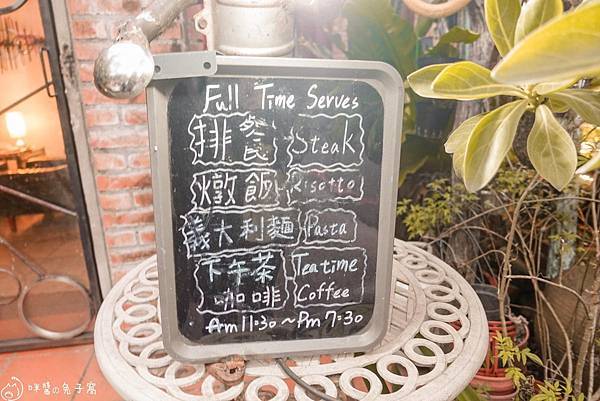 Full Time Serves
排餐 Steak
燉飯 Risotto
義大利麵 Pasta
下午茶 Teatime
咖啡 Coffee
Am 11:30～Pm 7:30
咪醬の兔子窩